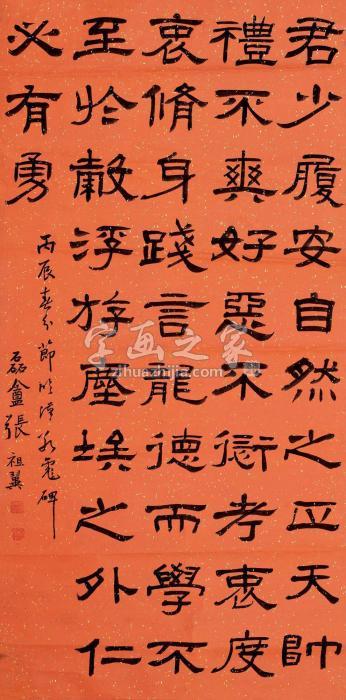 君少履安自然之正天帥
禮不爽好惡不愆考衷度
衷脩身踐言龍德而學不
至於穀浮游塵埃之外仁
必有勇
丙辰春分節臨漢夏碑
磊盦張祖翼
字画之家
zihuazhijia.com